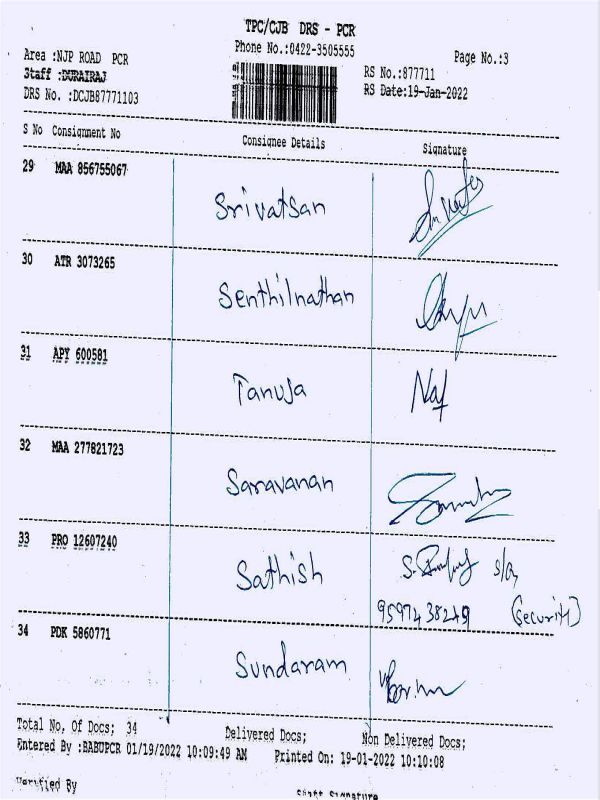 TPC/CJB DRS - PCR
Phone No.:0422-3505555
Page No.:3
Area :NJP ROAD PCR
Staff :DURAIRAJ
RS No.:877711
DRS No. :DCJB87771103
RS Date:19-Jan-2022
S No Consignment No Consignee Details Signature
29 MAA 856755067 Srivatsan
30 ATR 3073265 Senthilnathan
31 APY 600581 Tanuja
32 MAA 277821723 Saravanan
33 PRO 12607240 Sathish
(Security)
34 PDK 5860771 Sundaram
Total No. Of Docs; 34 Delivered Docs; Non Delivered Docs;
Entered By :BABUPCR 01/19/2022 10:09:49 AM Printed On: 19-01-2022 10:10:08
Verified By Staff Signature